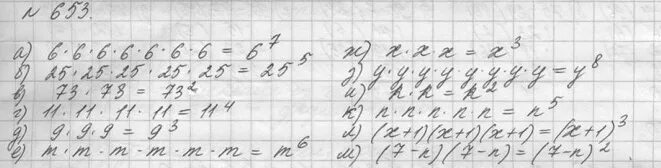 № 653.
а) 6·6·6·6·6·6·6 = 6⁷
б) 25·25·25·25·25 = 25⁵
в) 73·73 = 73²
г) 11·11·11·11 = 11⁴
д) 9·9·9 = 9³
е) m·m·m·m·m·m = m⁶
ж) x·x·x = x³
з) y·y·y·y·y·y·y·y = y⁸
и) n·n = n²
к) n·n·n·n·n = n⁵
л) (x+1)(x+1)(x+1) = (x+1)³
м) (7-n)(7-n) = (7-n)².